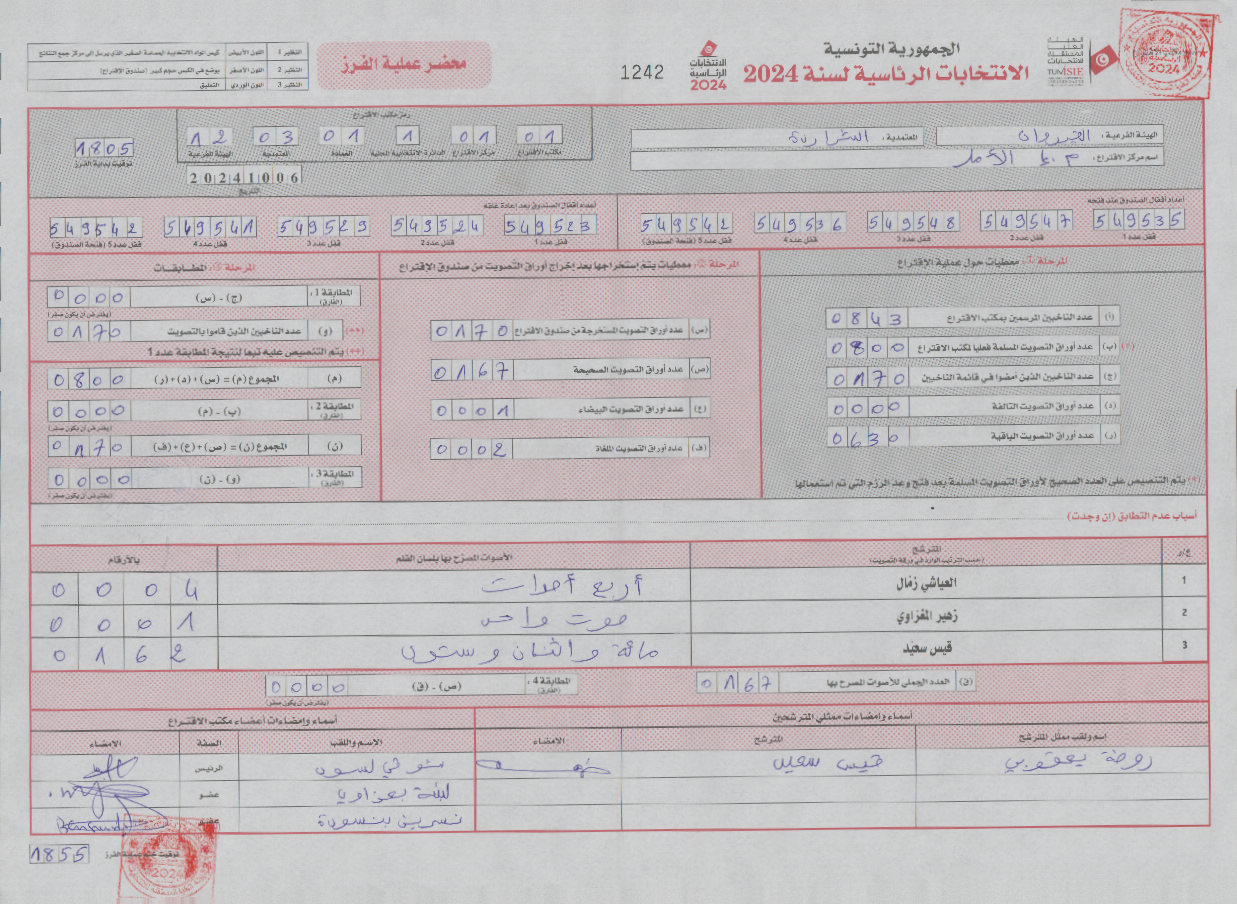 الجمهورية التونسية
الانتخابات الرئاسية لسنة 2024
الهيئة العليا المستقلة للانتخابات
TUNISIE
الانتخابات الرئاسية 2024
1242
محضر عملية الفرز
النظير 1 اللون الأبيض كيس المواد الانتخابية الحساسة الصغير الذي يرسل إلى مركز جمع النتائج
النظير 2 اللون الأصفر يوضع في الكيس حجم كبير (صندوق الاقتراع)
النظير 3 اللون الوردي التعليق
الهيئة الفرعية : القيروان
المعتمدية : الشراردة
اسم مركز الاقتراع : م.إ. الأمل
رمز مكتب الاقتراع
01 01 1 01 03 12
مكتب الاقتراع مركز الاقتراع الدائرة الانتخابية المحلية العمادة المعتمدية الهيئة الفرعية
20241006
التاريخ
1805
توقيت بداية الفرز
أعداد أقفال الصندوق عند فتحه
549535 549547 549548 549536 549542
قفل عدد 1 قفل عدد 2 قفل عدد 3 قفل عدد 4 قفل عدد 5 (فتحة الصندوق)
أعداد أقفال الصندوق بعد إعادة غلقه
549523 549524 549529 549541 549542
قفل عدد 1 قفل عدد 2 قفل عدد 3 قفل عدد 4 قفل عدد 5 (فتحة الصندوق)
المرحلة ①: معطيات حول عملية الاقتراع
(أ) عدد الناخبين المرسمين بمكتب الاقتراع 0843
(*) (ب) عدد أوراق التصويت المسلمة فعليا لمكتب الاقتراع 0800
(ج) عدد الناخبين الذين أمضوا في قائمة الناخبين 0170
(د) عدد أوراق التصويت التالفة 0000
(ر) عدد أوراق التصويت الباقية 0630
(*) يتم التنصيص على العدد الصحيح لأوراق التصويت المسلمة بعد فتح وعد الرزم التي تم استعمالها
المرحلة ②: معطيات يتم استخراجها بعد إخراج أوراق التصويت من صندوق الاقتراع
(س) عدد أوراق التصويت المستخرجة من صندوق الاقتراع 0170
(ص) عدد أوراق التصويت الصحيحة 0167
(ع) عدد أوراق التصويت البيضاء 0001
(ف) عدد أوراق التصويت الملغاة 0002
المرحلة ③: المطابقات
المطابقة 1 : (الفارق) (ج) - (س) 0000
(يفترض أن يكون صفر)
(**) (و) عدد الناخبين الذين قاموا بالتصويت 0170
(**) يتم التنصيص عليه تبعا لنتيجة المطابقة عدد 1
(م) المجموع (م) = (س) + (د) + (ر) 0800
المطابقة 2 : (الفارق) (ب) - (م) 0000
(يفترض أن يكون صفر)
(ن) المجموع (ن) = (ص) + (ع) + (ف) 0170
المطابقة 3 : (الفارق) (و) - (ن) 0000
(يفترض أن يكون صفر)
أسباب عدم التطابق (إن وجدت)
ع/ر المترشح الأصوات المصرح بها بلسان القلم بالأرقام
(حسب الترتيب الوارد في ورقة التصويت)
1 العياشي زمّال أربع أصوات 0004
2 زهير المغزاوي صوت واحد 0001
3 قيس سعيّد مائة واثنان وستون 0162
(ق) العدد الجملي للأصوات المصرح بها 0167
المطابقة 4 : (الفارق) (ص) - (ق) 0000
(يفترض أن يكون صفر)
أسماء وإمضاءات ممثلي المترشحين
أسماء وإمضاءات أعضاء مكتب الاقتراع
اسم ولقب ممثل المترشح المترشح الامضاء
الاسم واللقب الصفة الامضاء
روضة يعقوبي قيس سعيد
الرئيس
عضو
نسرين بنسودة عضو
توقيت ختم عملية الفرز
1855
2024